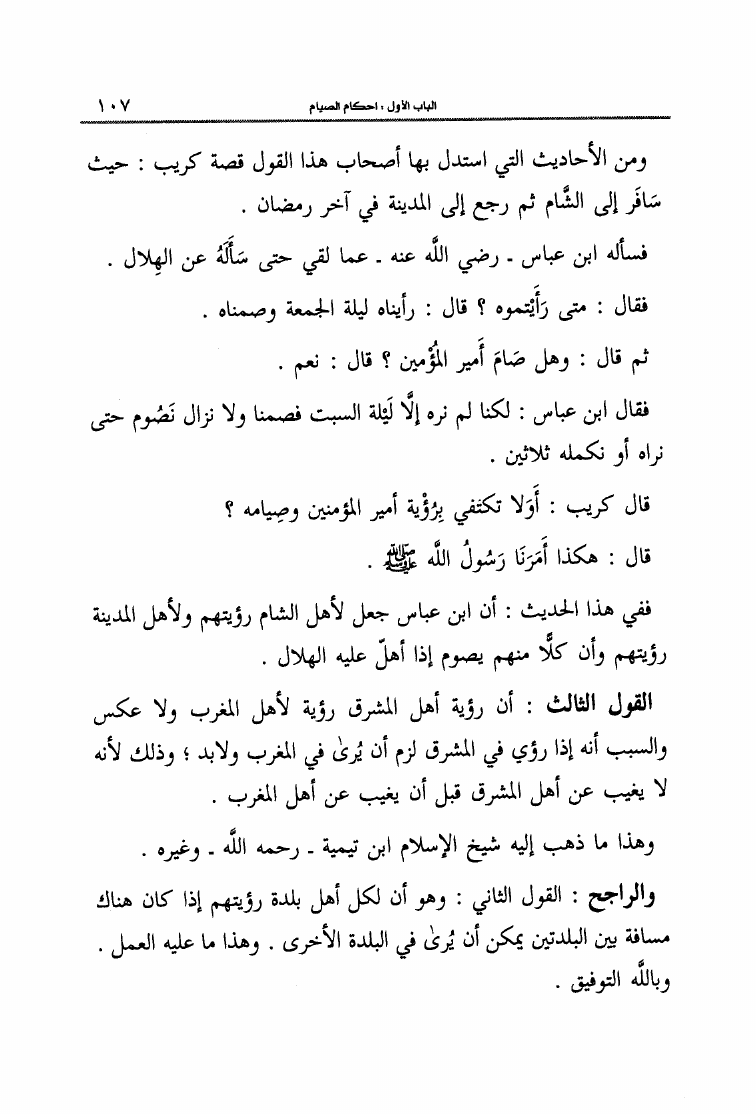 الباب الأول : أحكام الصيام ١٠٧
ومن الأحاديث التي استدل بها أصحاب هذا القول قصة كريب : حيث
سَافَر إلى الشَّام ثم رجع إلى المدينة في آخر رمضان .
فسأله ابن عباس ـ رضي اللَّه عنه ـ عما لقي حتى سَأَلَهُ عن الهِلال .
فقال : متى رَأَيْتموه ؟ قال : رأيناه ليلة الجمعة وصمناه .
ثم قال : وهل صَامَ أَمير المُؤْمنين ؟ قال : نعم .
فقال ابن عباس : لكنا لم نره إلَّا لَيْلة السبت فصمنا ولا نزال نَصُوم حتى
نراه أو نكمله ثلاثين .
قال كريب : أَوَلا تكتَفي بِرُؤْية أمير المؤمنين وصِيامه ؟
قال : هكذا أَمَرَنَا رَسُولُ اللَّه ﷺ .
ففي هذا الحديث : أن ابن عباس جعل لأهل الشام رؤيتهم ولأهل المدينة
رؤيتهم وأن كلًّا منهم يصوم إذا أهلّ عليه الهلال .
القول الثالث : أن رؤية أهل المشرق رؤية لأهل المغرب ولا عكس
والسبب أنه إذا رؤي في المشرق لزم أن يُرىٰ في المغرب ولابد ؛ وذلك لأنه
لا يغيب عن أهل المشرق قبل أن يغيب عن أهل المغرب .
وهذا ما ذهب إليه شيخ الإسلام ابن تيمية ـ رحمه اللَّه ـ وغيره .
والراجح : القول الثاني : وهو أن لكل أهل بلدة رؤيتهم إذا كان هناك
مسافة بين البلدتين يمكن أن يُرىٰ في البلدة الأخرى . وهذا ما عليه العمل .
وباللَّه التوفيق .